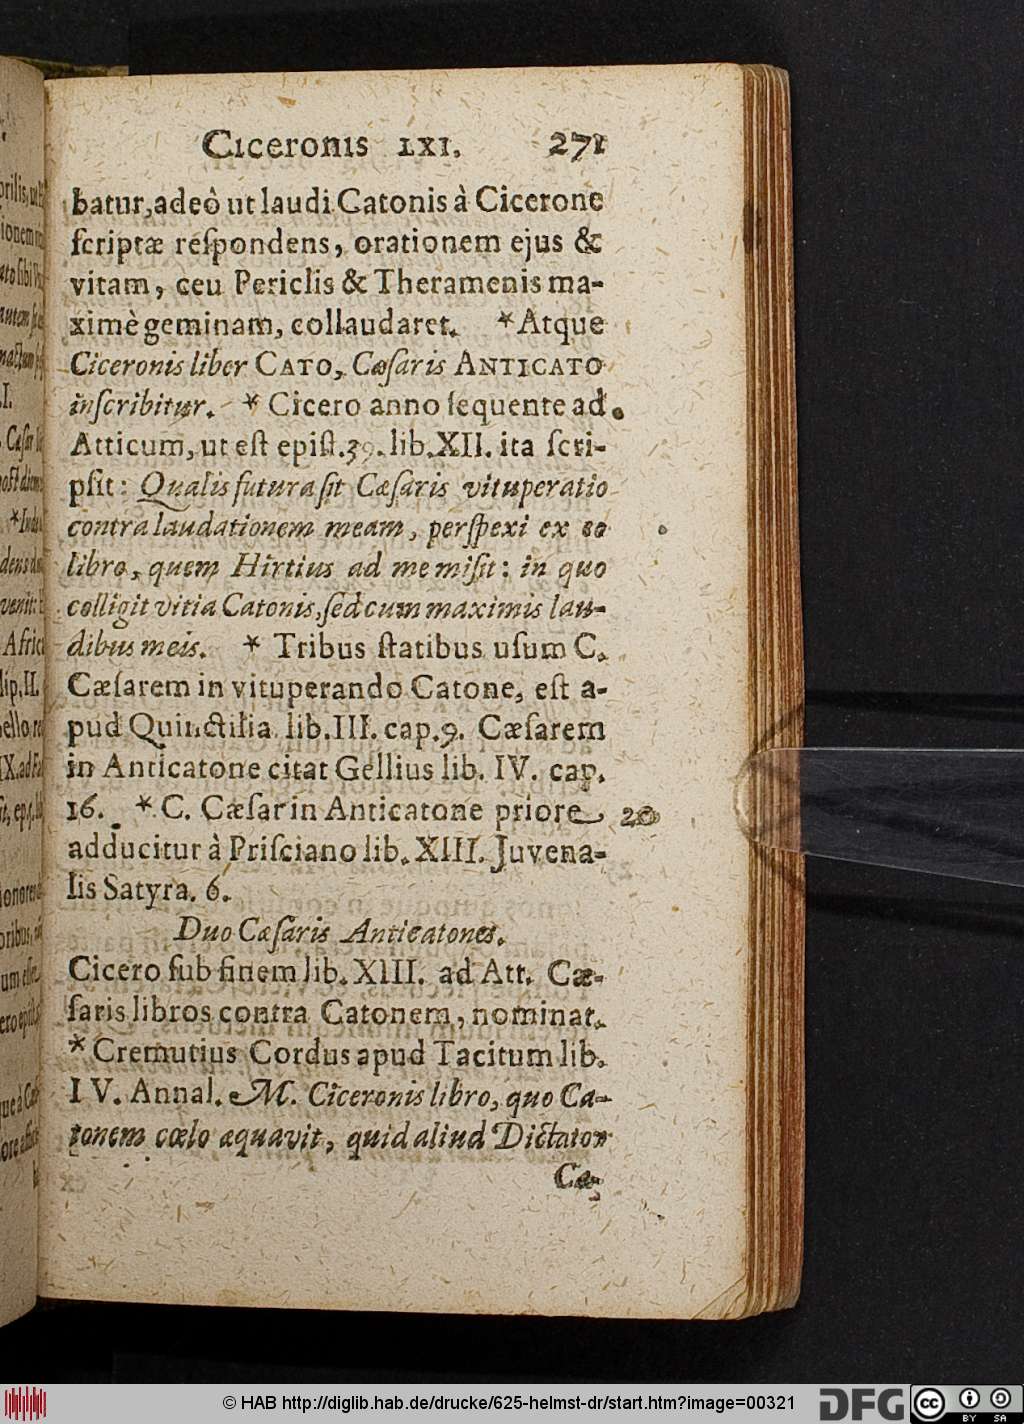 Ciceronis LXI. 271
batur, adeò ut laudi Catonis à Cicerone
ſcriptæ reſpondens, orationem ejus &
vitam, ceu Periclis & Theramenis ma-
ximè geminam, collaudaret. * Atque
Ciceronis liber CATO, Cæſaris ANTICATO
inſcribitur. * Cicero anno ſequente ad
Atticum, ut eſt epiſt. 39. lib. XII. ita ſcri-
pſit: Qualis futura ſit Cæſaris vituperatio
contra laudationem meam, perſpexi ex eo
libro, quem Hirtius ad me miſit: in quo
colligit vitia Catonis, ſed cum maximis lau-
dibus meis. * Tribus ſtatibus uſum C.
Cæſarem in vituperando Catone, eſt a-
pud Quinctilia. lib. III. cap. 9. Cæſarem
in Anticatone citat Gellius lib. IV. cap.
16. * C. Cæſar in Anticatone priore 20
adducitur à Priſciano lib. XIII. Juvena-
lis Satyra. 6.
Duo Cæſaris Anticatones.
Cicero ſub finem lib. XIII. ad Att. Cæ-
ſaris libros contra Catonem, nominat.
* Cremutius Cordus apud Tacitum lib.
IV. Annal. M. Ciceronis libro, quo Ca-
tonem cœlo æquavit, quid aliud Dictator
Cæ-
© HAB http://diglib.hab.de/drucke/625-helmst-dr/start.htm?image=00321
DFG
cc
BY SA